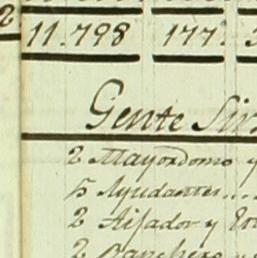 2
11.798 177
Gente Sir
2 Mayordomo y
5 Ayudantes...
2 Aijador y
2 Ranchero y